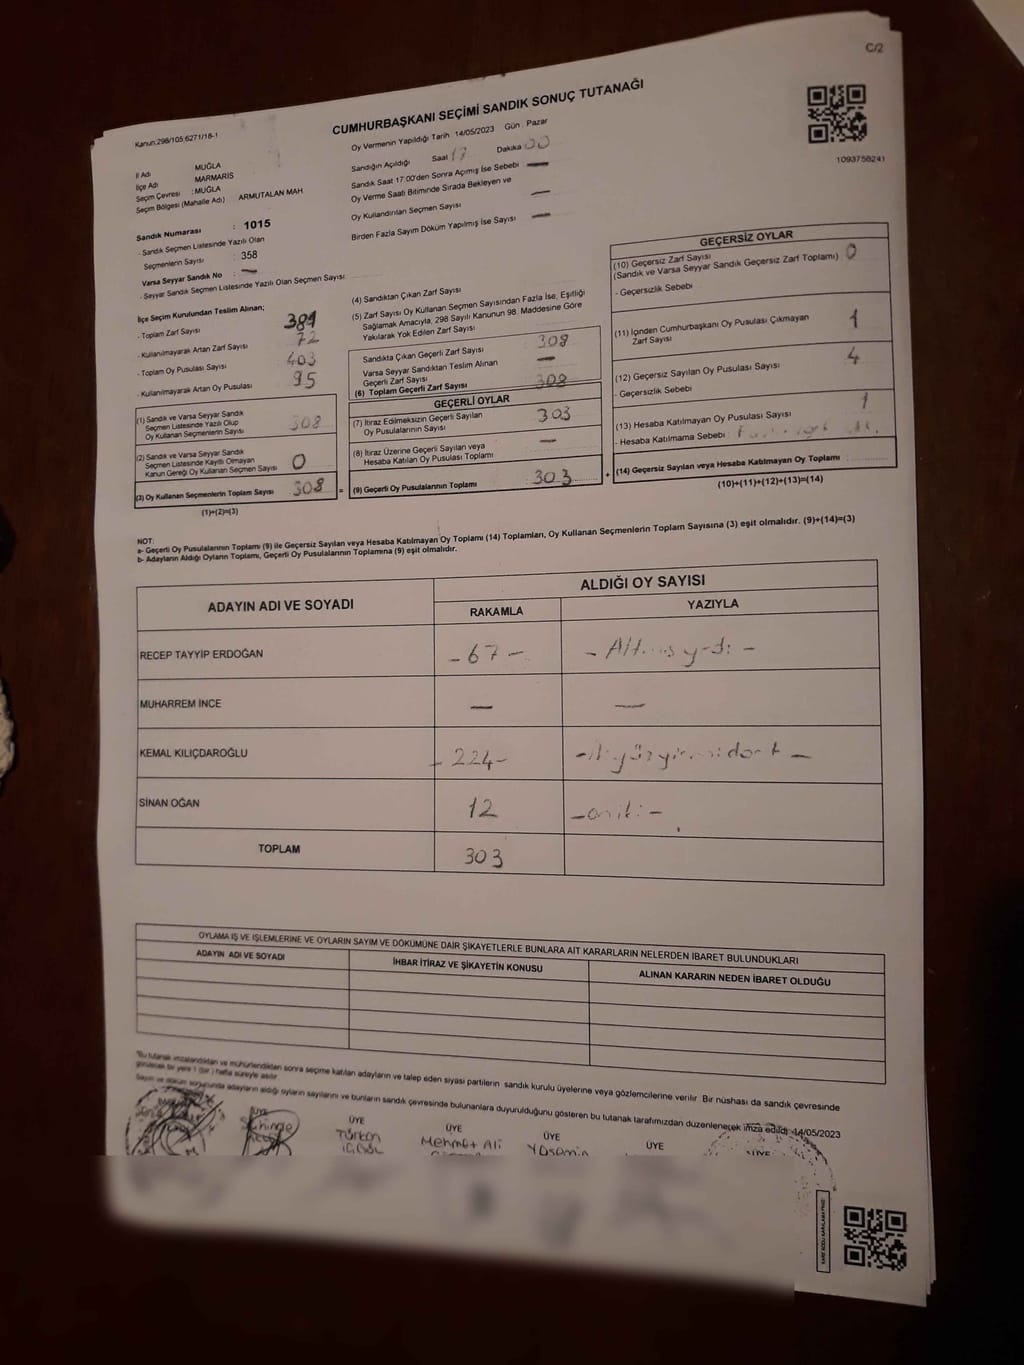 C/2
Kanun:298/105 6271/18-1
CUMHURBAŞKANI SEÇİMİ SANDIK SONUÇ TUTANAĞI
1093758241
İl Adı MUĞLA
İlçe Adı MARMARİS
Seçim Çevresi : MUĞLA
Seçim Bölgesi (Mahalle Adı) ARMUTALAN MAH
Oy Vermenin Yapıldığı Tarih 14/05/2023 Gün : Pazar
Sandığın Açıldığı Saat 17 Dakika 00
Sandık Saat 17:00'den Sonra Açımış İse Sebebi —
Oy Verme Saati Bitiminde Sırada Bekleyen ve
Oy Kullandırılan Seçmen Sayısı —
Birden Fazla Sayım Döküm Yapılmış İse Sayısı —
Sandık Numarası : 1015
- Sandık Seçmen Listesinde Yazılı Olan
Seçmenlerin Sayısı : 358
Varsa Seyyar Sandık No : —
- Seyyar Sandık Seçmen Listesinde Yazılı Olan Seçmen Sayısı:
İlçe Seçim Kurulundan Teslim Alınan;
- Toplam Zarf Sayısı
- Kullanılmayarak Artan Zarf Sayısı 72
- Toplam Oy Pusulası Sayısı 403
- Kullanılmayarak Artan Oy Pusulası 95
(1) Sandık ve Varsa Seyyar Sandık
Seçmen Listesinde Yazılı Olup
Oy Kullanan Seçmenlerin Sayısı 308
(2) Sandık ve Varsa Seyyar Sandık
Seçmen Listesinde Kayıtlı Olmayan
Kanun Gereği Oy Kullanan Seçmen Sayısı 0
(3) Oy Kullanan Seçmenlerin Toplam Sayısı 308
(1)+(2)=(3)
=
(4) Sandıktan Çıkan Zarf Sayısı
(5) Zarf Sayısı Oy Kullanan Seçmen Sayısından Fazla İse, Eşitliği
Sağlamak Amacıyla, 298 Sayılı Kanunun 98. Maddesine Göre
Yakılarak Yok Edilen Zarf Sayısı
Sandıkta Çıkan Geçerli Zarf Sayısı 308
Varsa Seyyar Sandıktan Teslim Alınan
Geçerli Zarf Sayısı —
(6) Toplam Geçerli Zarf Sayısı 308
GEÇERLİ OYLAR
(7) İtiraz Edilmeksizin Geçerli Sayılan
Oy Pusulalarının Sayısı 303
(8) İtiraz Üzerine Geçerli Sayılan veya
Hesaba Katılan Oy Pusulası Toplamı —
(9) Geçerli Oy Pusulalarının Toplamı 303
+
GEÇERSİZ OYLAR
(10) Geçersiz Zarf Sayısı
(Sandık ve Varsa Seyyar Sandık Geçersiz Zarf Toplamı) 0
- Geçersizlik Sebebi
(11) İçinden Cumhurbaşkanı Oy Pusulası Çıkmayan
Zarf Sayısı 1
(12) Geçersiz Sayılan Oy Pusulası Sayısı 4
- Geçersizlik Sebebi
(13) Hesaba Katılmayan Oy Pusulası Sayısı 1
- Hesaba Katılmama Sebebi :
(14) Geçersiz Sayılan veya Hesaba Katılmayan Oy Toplamı :
(10)+(11)+(12)+(13)=(14)
NOT:
a- Geçerli Oy Pusulalarının Toplamı (9) ile Geçersiz Sayılan veya Hesaba Katılmayan Oy Toplamı (14) Toplamları, Oy Kullanan Seçmenlerin Toplam Sayısına (3) eşit olmalıdır. (9)+(14)=(3)
b- Adayların Aldığı Oyların Toplamı, Geçerli Oy Pusulalarının Toplamına (9) eşit olmalıdır.
ADAYIN ADI VE SOYADI
ALDIĞI OY SAYISI
RAKAMLA YAZIYLA
RECEP TAYYİP ERDOĞAN - 67 - - Altmışyedi -
MUHARREM İNCE — —
KEMAL KILIÇDAROĞLU - 224 - - ikiyüzyirmidört -
SİNAN OĞAN 12 - oniki -
TOPLAM 303
OYLAMA İŞ VE İŞLEMLERİNE VE OYLARIN SAYIM VE DÖKÜMÜNE DAİR ŞİKAYETLERLE BUNLARA AİT KARARLARIN NELERDEN İBARET BULUNDUKLARI
ADAYIN ADI VE SOYADI İHBAR İTİRAZ VE ŞİKAYETİN KONUSU ALINAN KARARIN NEDEN İBARET OLDUĞU
"Bu tutanak imzalandıktan ve mühürlendikten sonra seçime katılan adayların ve talep eden siyasi partilerin sandık kurulu üyelerine veya gözlemcilerine verilir. Bir nüshası da sandık çevresinde
görülecek bir yere 1 (bir) hafta süreyle asılır
Sayım ve döküm sonucunda adayların aldığı oyların sayılarını ve bunların sandık çevresinde bulunanlara duyurulduğunu gösteren bu tutanak tarafımızdan düzenlenerek imza edildi. 14/05/2023
ÜYE ÜYE ÜYE ÜYE ÜYE ÜYE
Türkan Mehmet Ali Yasemin